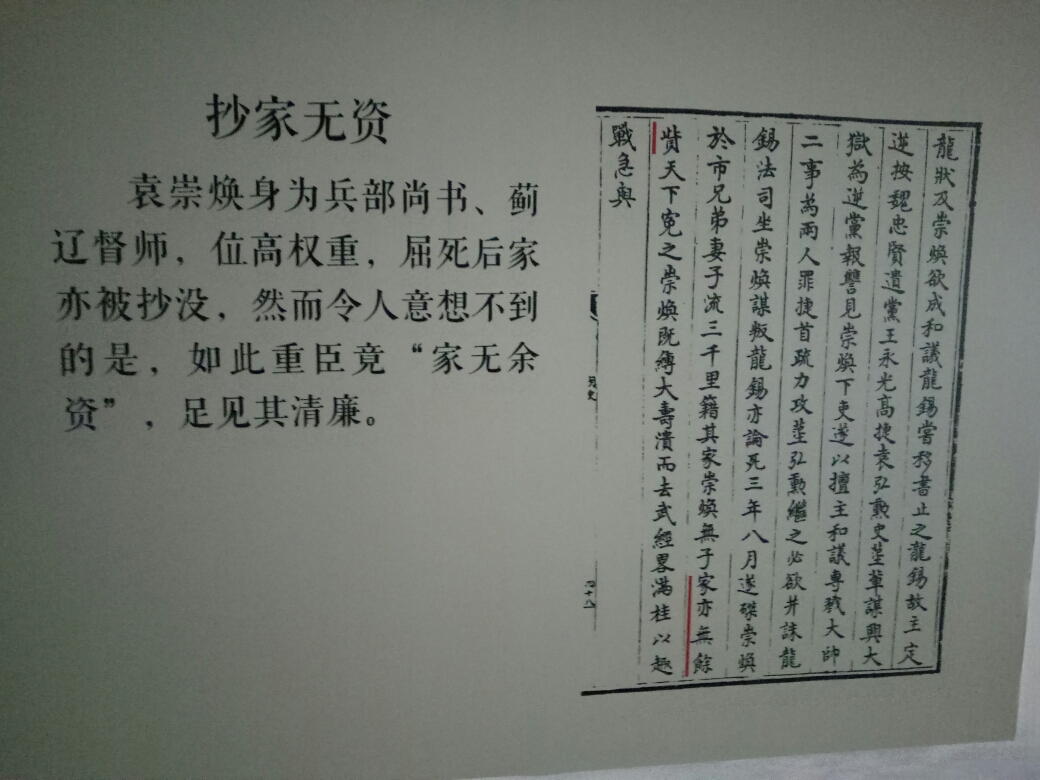 抄家无资
袁崇焕身为兵部尚书、蓟
辽督师，位高权重，屈死后家
亦被抄没，然而令人意想不到
的是，如此重臣竟“家无余
资”，足见其清廉。
龍狀及崇煥欲成和議龍錫嘗移書止之龍錫故主定
逆按魏忠賢遺黨王永光高捷袁弘勲史𡎊輩謀興大
獄為逆黨報讐見崇煥下吏遂以擅主和議專戮大帥
二事為兩人罪捷首疏力攻𡎊弘勲繼之必欲并誅龍
錫法司坐崇煥謀叛龍錫亦論死三年八月遂磔崇煥
於市兄弟妻子流三千里籍其家崇煥無子家亦無餘
貲天下寃之崇煥既縛大壽潰而去武經畧滿桂以趣
戰急與
明史
四十八